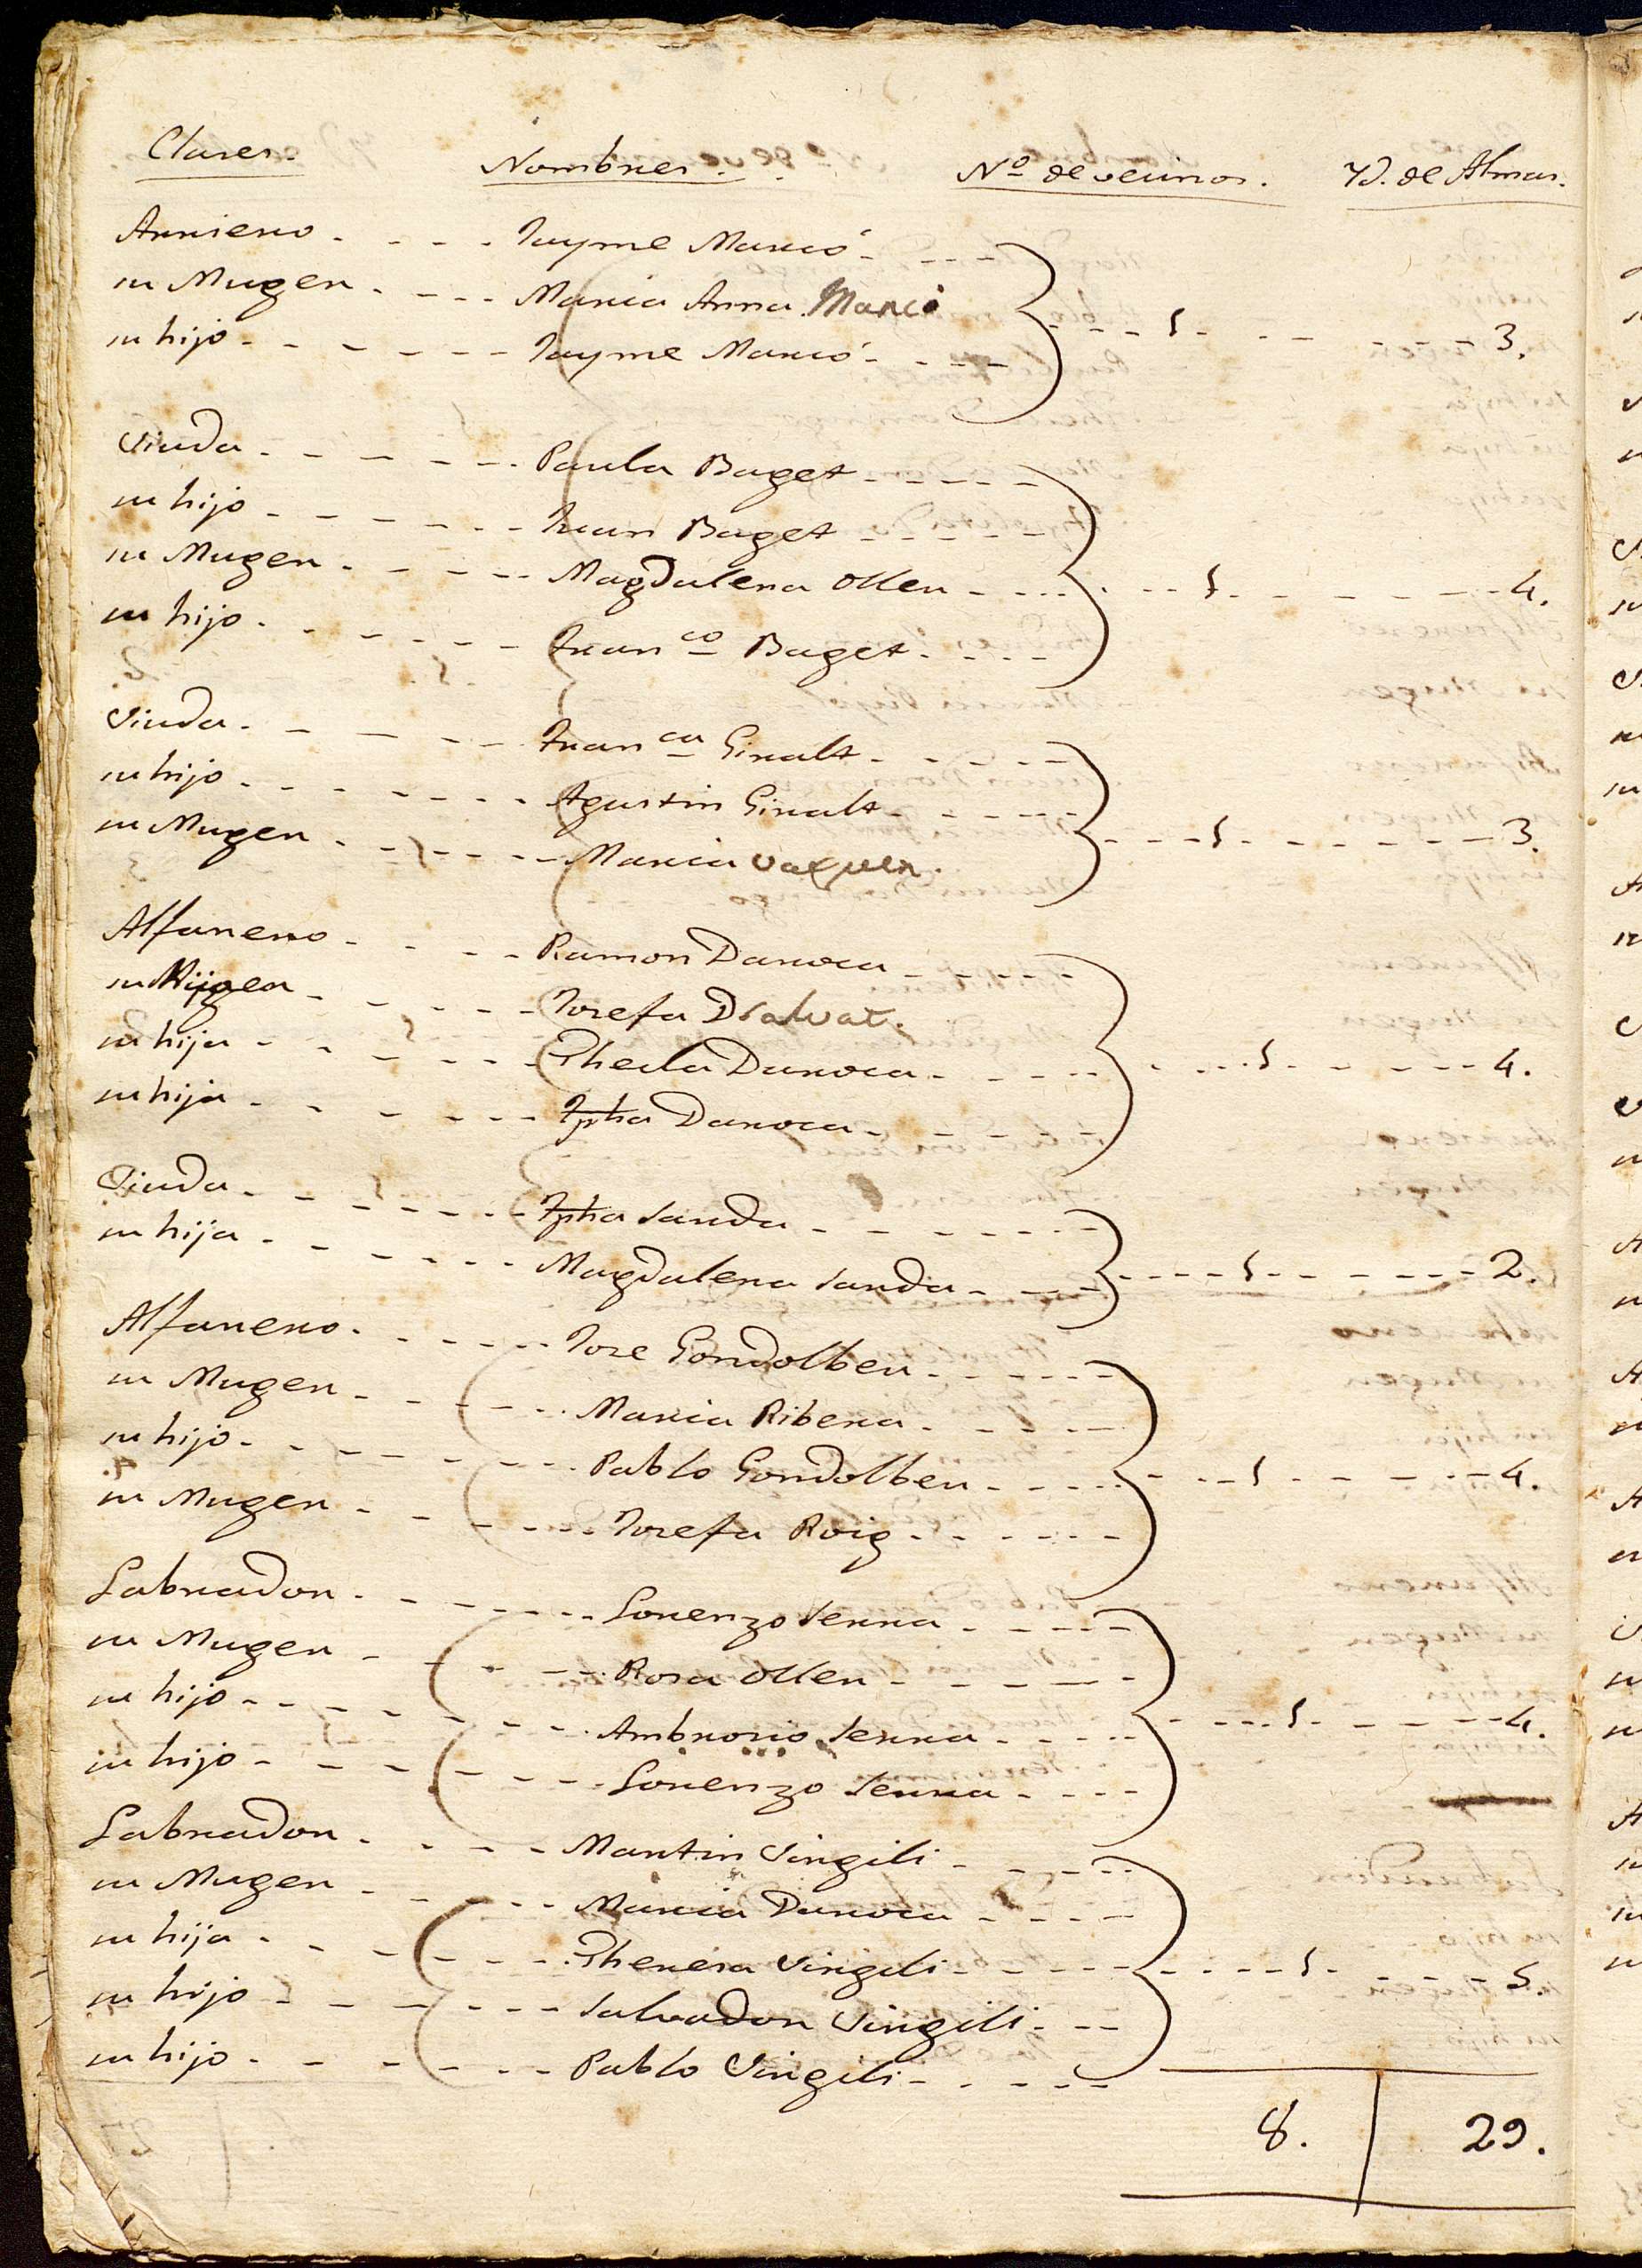 Clases. Nombres. Nº de vecinos. Yd. de Almas.
Arriero - - - - Jayme Marcó - - - -
su Muger - - - - Maria Anna Marcó - - - 1 - - - - 3.
su hijo - - - - - - Jayme Marcó - - - -
Viuda - - - - - - Paula Baget - - - - -
su hijo - - - - - - Juan Baget - - - - -
su Muger - - - - - Magdalena Oller - - - - 1 - - - - 4.
su hijo - - - - - - Franco Baget - - - -
Viuda - - - - - - Franca Giralt - - - - -
su hijo - - - - - - Agustin Giralt - - - - -
su Muger - - - - - Maria Vaquer. - - - 1 - - - - 3.
Alfarero - - - - Ramon Daroca - - - - -
su Muger - - - - - Josefa Dsalvat.
su hija - - - - - - Thecla Daroca - - - - - 1 - - - - 4.
su hija - - - - - - Jpha Daroca - - - - -
Viuda - - - - - - Jpha Sarda - - - - - -
su hija - - - - - - Magdalena Sarda - - - - 1 - - - - 2.
Alfarero - - - - - Jose Gondolber - - - - -
su Muger - - - - - Maria Ribera - - - - -
su hijo - - - - - - Pablo Gondolber - - - - - 1 - - - - 4.
su Muger - - - - - Josefa Roig - - - - - -
Labrador - - - - - Lorenzo Serra - - - - -
su Muger - - - - - Rosa Oller - - - - - -
su hijo - - - - - - Ambrosio Serra - - - - - 1 - - - - 4.
su hijo - - - - - - Lorenzo Serra - - - -
Labrador - - - - Martin Virgili - - - - -
su Muger - - - - - Maria Daroca - - - -
su hija - - - - - - Theresa Virgili - - - - - 1 - - - - 5.
su hijo - - - - - - Salvador Virgili - - -
su hijo - - - - - - Pablo Virgili - - - - -
8. 29.